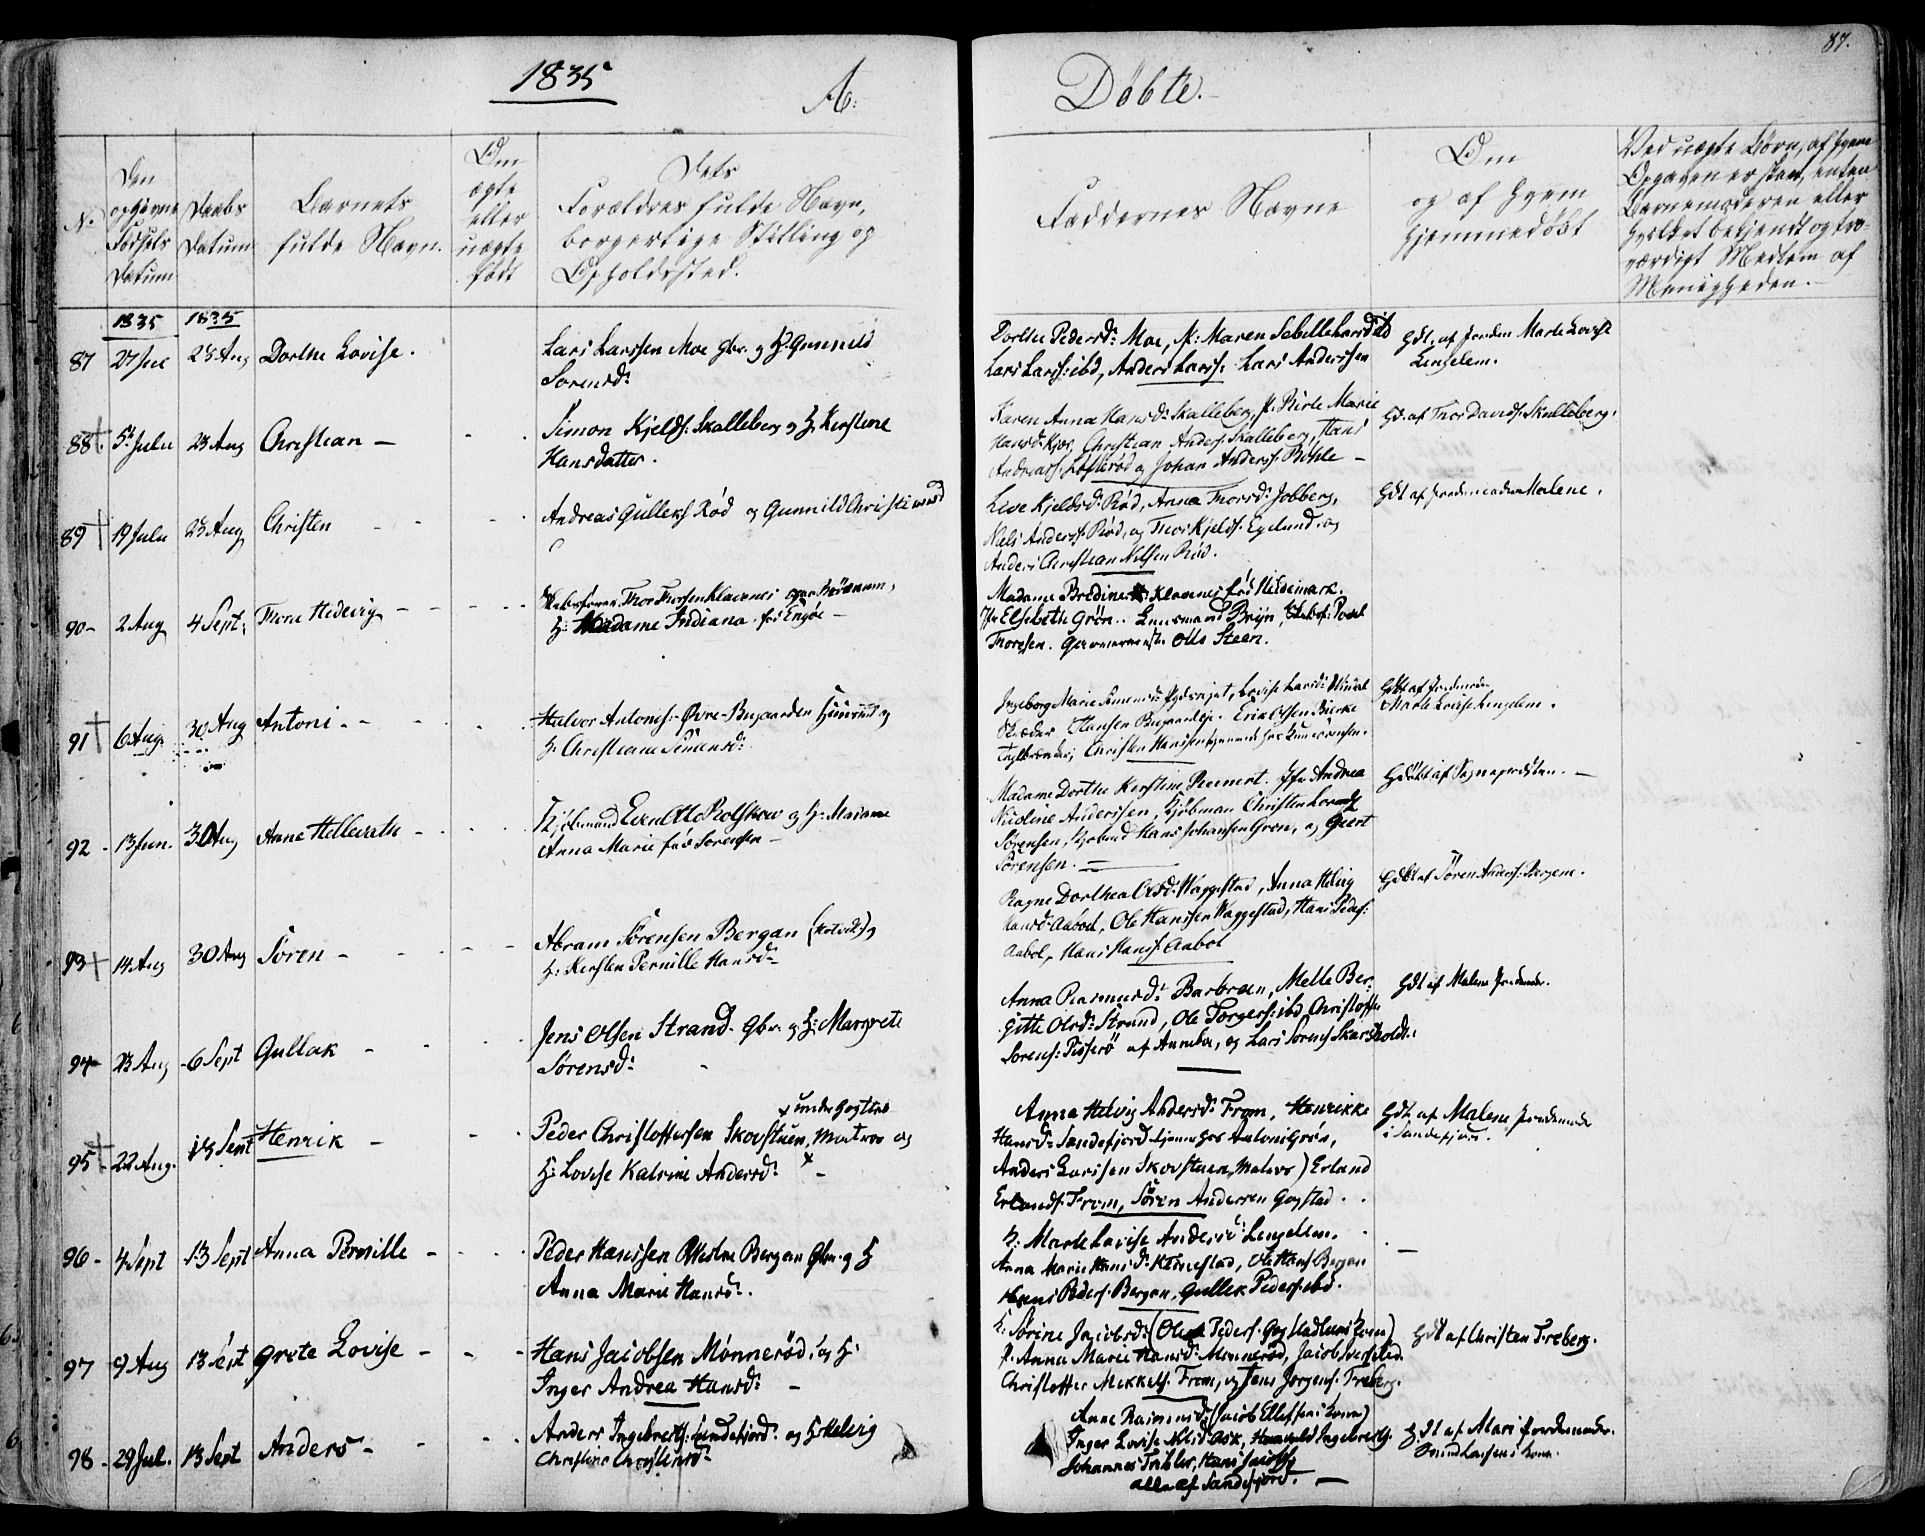 1835
A:
Döbte.
87.
No.
Den opgivne Födsels Datum
Daabs Datum
Barnets fulde Navn.
Om ægte eller uægte födt
Dets Forældres fulde Navn, borgerlige Stilling og Opholdssted.
Faddernes Navne
Om og af hvem hjemmedöbt
Ved uægte Börn, af hvem Opgaven er skeet, enten Barnemoderen eller hvilket bekjendt og troværdigt Medlem af Menigheden.
1835 1835
87 27 Jul 23 Aug Dorthe Lovise.
Lars Larssen Moe Gbr. og H. Gunnild
Sorensd:
Dorthe Pedersd: Moe, P: Maren Sebille Larsd ibd
Lars Larss: ibd, Anders Larss: Lars Anderssen
Hdt. af Jordem Marte Lovise
Lengelem.
88 5 Julii 23 Aug Christian —
Simon Kjelds: Skalleberg og H. Kirstine
Hansdatter.
Karen Anna Hansd: Skalleberg, P. Birte Marie
Hansd: Kjær, Christian Anders: Skalleberg, Hans
Andreass: Lofterød og Johan Anderss: Bohle —
Hdt. af Thor Davids: Skalleberg.
89 19 Julii 23 Aug Christen
Andreas Gulleks: Rød og Gunnild Christiansd
Live Kjeldsd: Rød, Anna Thorsd: Jobberg,
Niels Anderss: Rød, og Thor Kjelds: Egelund, og
Anders Christian Nilsen Rød.
Hdt af Jordemoder Malene.
90 2 Aug 4 Sept: Thora Hedevig
Skibsfører Thor Thorsen Klavenes
H: Madame Indiana. fød Engøe —
Madame Bredine Klavenes fød Hildemark.
Jfr. Elsebeth Grøn. Lensmand Bryn, Skibsf: Povel
Thoresen. Otto Steen.
91 6 Aug. 30 Aug Antoni —
Halvor Antonis: Øvre-Bugaarden Huusmd og
H. Christiane Simensd:
Ingeborg Marie Simensd: Lovise Larsd:
Skræder Hansen Bugaarden. Erik Olsen Bierke
Christen Hansen
Hdt af Jordemoder
Marte Lovise Lengelem.
92 13 Jun. 30 Aug Anna Hellevath
Kjöbmand Even Otto Rolfskow og H: Madame
Anna Marie fød Sorensen —
Madame Dorthe Kirstine Jfr Andrea
Nicoline Anderssen, Kjöbman Christen
Sörensen, Kjøbmd Hans Johansen Grøn, og Geert
Sörensen.
Hdöbt af Sognepresten. —
93 14 Aug 30 Aug Sören —
Abram Sörensen Bergan og
H: Kirsten Pernille Hansd:
Ragne Dorthea Olsd: Waggestad, Anna Helvig
Hansd: Aabol, Ole Hanssen Waggestad, Hans Peders:
Aabol, Hans Hanss: Aabol
Hdöbt af Sören Anders: Bergene.
94 23 Aug 6 Sept Gullak —
Jens Olsen Strand. Gbr. og H: Margrete
Sörensd:
Anna Rasmusd: Barbroen, Melle Ber:
gitte Olsd: Strand, Ole Torgers: ibd, Christoffer
Sorens: af Annebu, og Lars Sorens: Skarsholdt.
Hdt af Malene Jordemoder.
95 22 Aug. 13 Sept Henrik —
x under Gogstad
Peder Christoffersen Skovstuen, Matros og
H: Lovise Katrine Andersd:
Anna Helvig Andersd: From, Henrikke
Hansd: Sandefjord tjener hos Antoni Grøn,
Anders Larssen Skovstuen, Matros) Erland
Erlands: From, Sören Andersen Gogstad.
Hdt. af Malene Jordemoder
i Sandefjord.
96 4 Sept 13 Sept Anna Pernille
Peder Hanssen Bergan Gbr. og H
Anna Marie Hansd:.
H: Marte Lovise Andersd: Lengelem.
Anna Marie Hansd: Klinestad, Ole Hans: Bergan
Peders: Bergan, Gullek Peders: ibd.
97 9 Aug 13 Sept Grete Lovise
Hans Jacobsen Mönnerød, og H:
Inger Andrea Hansd: —
H: Sörine Jacobsd: (Ole Peders: Gogstad kone)
P: Anna Marie Hansd: Mönnerød, Jacob
Christoffer Mikkels: From, og Jens Jörgens: Freberg.
Hdt af Christen Freberg.
98 29 Jul. 13 Sept Anders —
Anders Ingebrets: Sandefjord. og H Helvig
Christine Christensd:
Anne Rasmusd: (Jacob Ellefsens kone)
Inger Lovise Ask, Ingebretsd:
Johannes Hans Jacobs:
alle af Sandefjord. —
Hdt af Mari Jordemoder.
kone